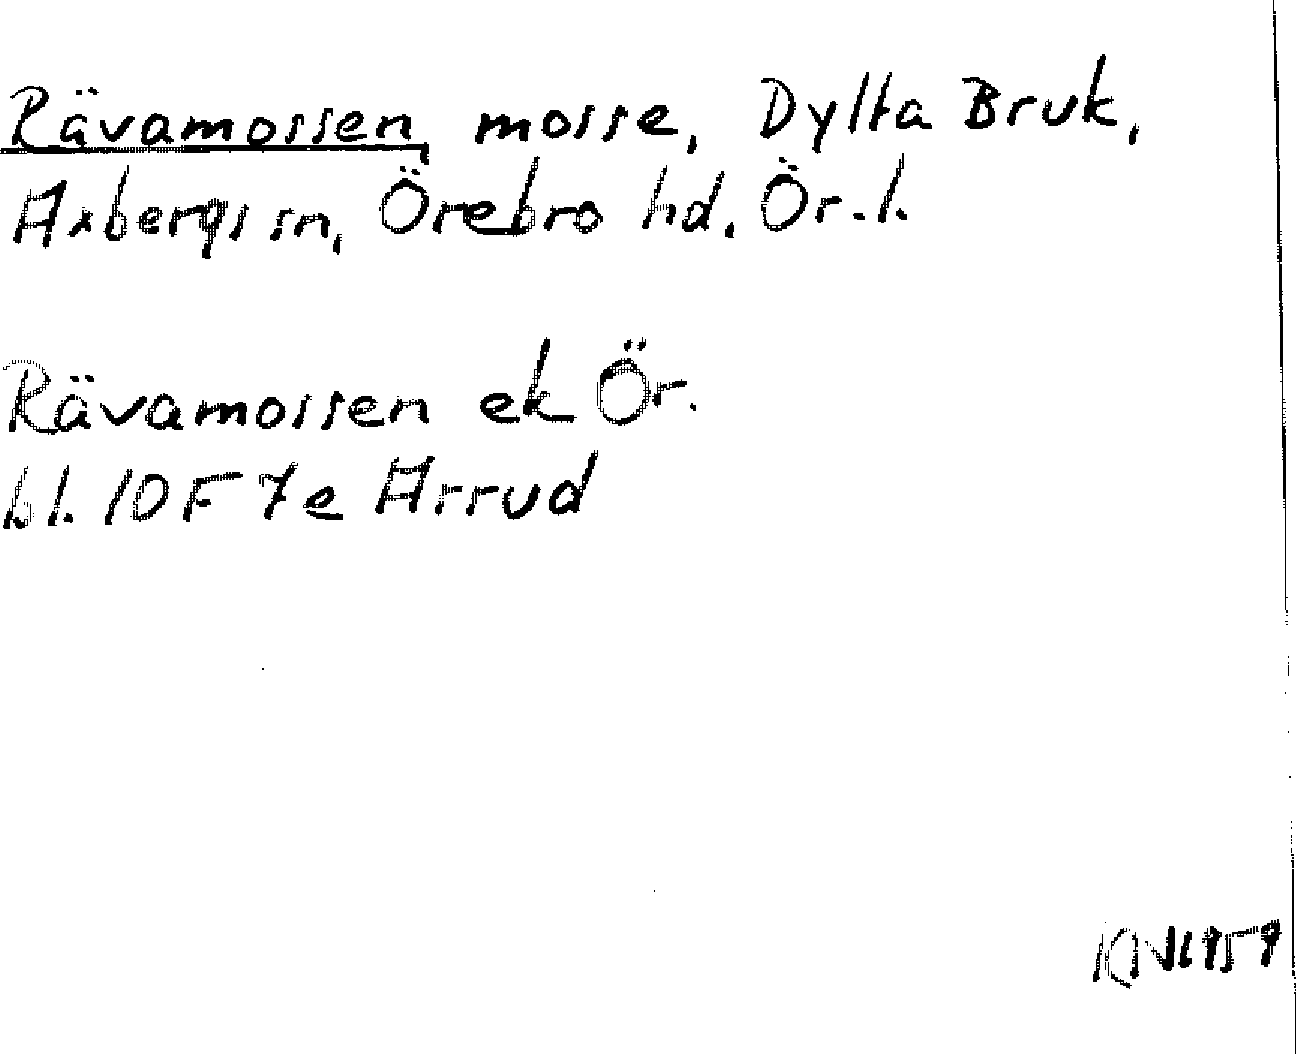 Rävamossen, mosse, Dylta Bruk,
Axbergs sn, Örebro hd. Ör. l.
Rävamossen ek Ör.
bl. 10 F 7e Arrud